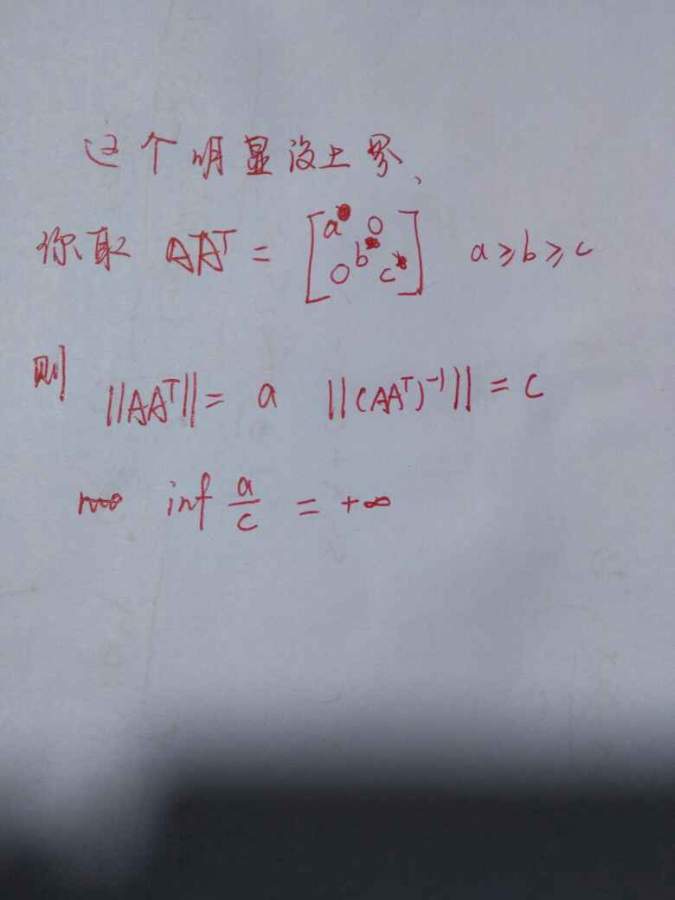 这个明显没上界、
你取 AAᵀ = [a 0 b 0 c] a ≥ b ≥ c
则 ||AAᵀ|| = a ||(AAᵀ)⁻¹|| = c
inf a/c = +∞